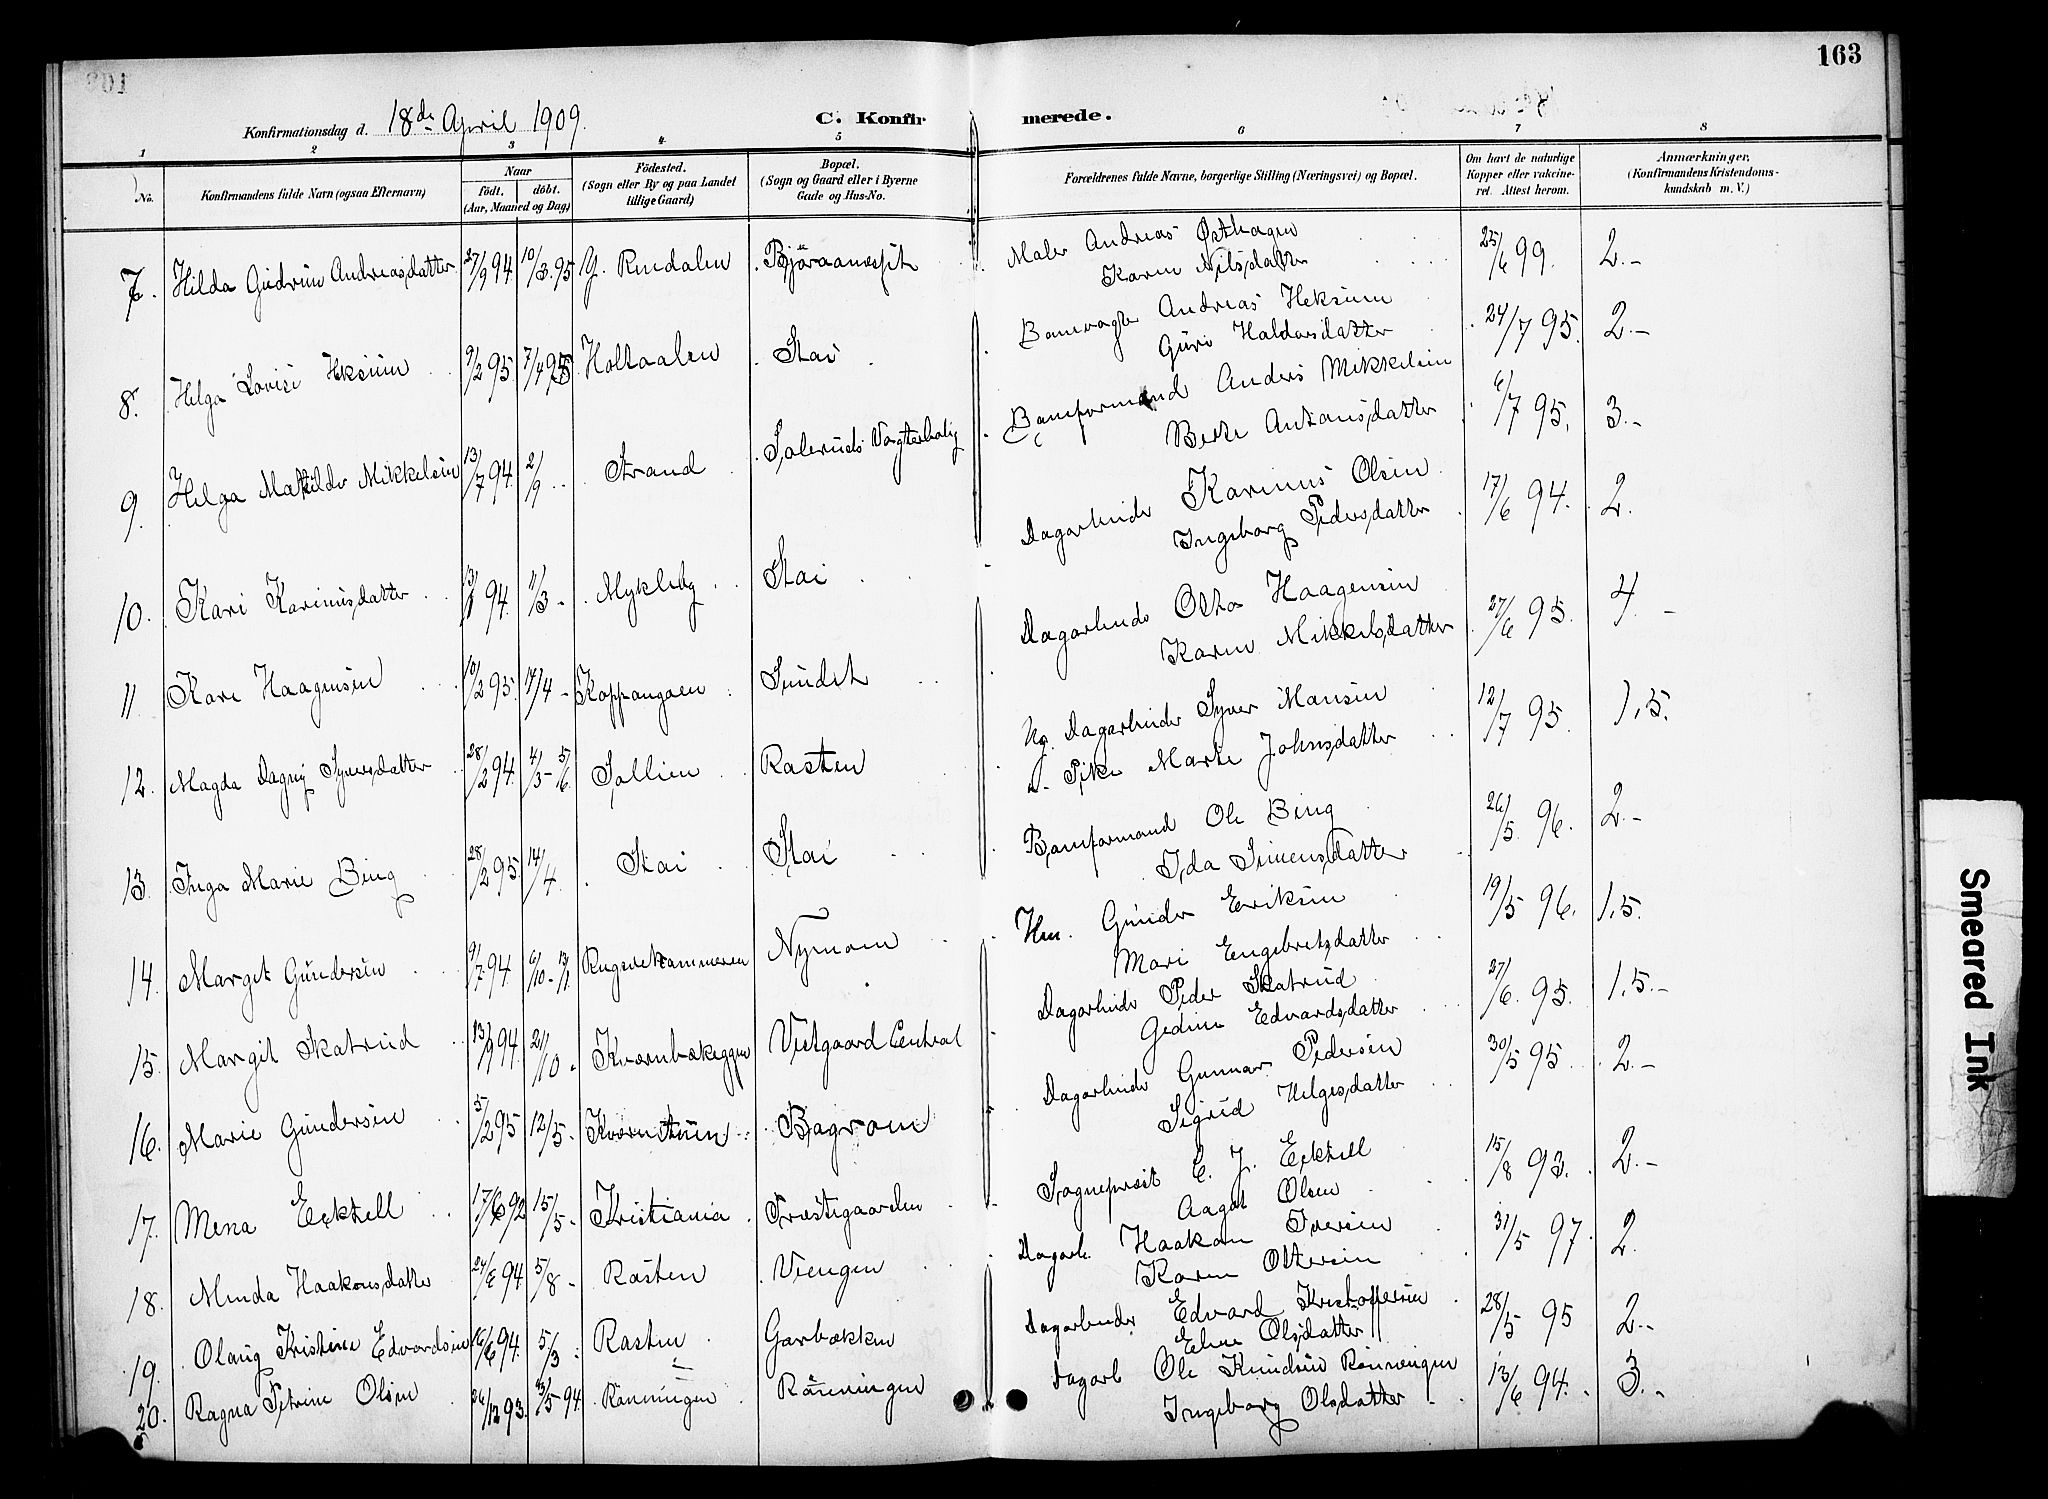 163
Konfirmationsdag d. 18de April 1909.
C. Konfirmerede.
1 2 3 4 5 6 7 8
No.
Konfirmandens fulde Navn (ogsaa Efternavn)
Naar
födt. döbt.
(Aar, Maaned og Dag)
Födested.
(Sogn eller By og paa Landet
tillige Gaard)
Bopæl.
(Sogn og Gaard eller i Byerne
Gade og Hus-No.
Forældrenes fulde Navne, borgerlige Stilling (Næringsvei) og Bopæl.
Om havt de naturlige
Kopper eller vakcine-
ret. Attest herom.
Anmærkninger,
(Konfirmandens Kristendoms-
kundskab m. V.)
7. Hilda Gudrun Andreasdatter 27/9 94 10/3 95 Y. Rendalen Björaanæsset Maler Andreas Østhagen 25/6 99. 2.-
Karen Nilsdatter
8. Helga Lovise Heksum 9/2 95 7/4 95 Holtaalen Stai Banevogter Andreas Heksum 24/7 95. 2.-
Guri Haldorsdatter
9. Helga Mathilde Mikkelsen 13/7 94 2/9 Strand Solerud Vogterbolig Baneformand Anders Mikkelsen 6/7 95. 3.-
Berthe Antonsdatter
10. Kari Karinusdatter 94. 11/3 - Mykleby Stai Dagarbeider Karinus Olsen 17/6 94. 2.
Ingeborg Pedersdatter
11 Kare Haagensen 10/2 95. 17/4 - Koppangöen Sundet Dagarbeider Otto Haagensen 27/6 95. 4 -
Karen Mikkelsdatter
12. Magda Dagny Syversdatter 28/2 94. 4/3 - 5/6 Sollien Rasten Ug. Dagarbeider Syver Hansen 12/7 95. 1,5.
Pike Marte Johnsdatter
13. Inga Marie Bing 28/2 95. 14/4. Stai Stai Baneformand Ole Bing 26/5. 96. 2.-
Ida Simensdatter
14. Margit Gundersen 9/7 94. 6/10 - Rugsvekammeren Nymoen Hm. Gunder Eriksen 19/5 96. 1,5.
Mari Engebretsdatter
15. Margit Skatrud 13/9 94. 21/10 - Kværnbækeggen Vestgaard Central Dagarbeider Peder Skatrud 27/6. 95. 1,5.-
Gedine Edvardsdatter
16. Marie Gundersen 5/2 95 12/5 - Kværnstuen Bagmoen Dagarbeider Gunnar Pedersen 30/5 95. 2.-
Sigrid Helgesdatter
17. Mena Eckhell 17/6 92 15/5 - Kristiania Prestegaarden Sogneprest C. J. Eckhell 15/8 93. 2.-
Aagot Olsen
18. Minda Haakonsdatter 24/6 94. 5/8 - Rasten Viengen Dagarb. Haakon Iversen 31/5 97. 2.
Karen Ottersen
19. Olaug Kristine Edvardsen 16/6 94. 5/3 Rasten Garbækken Dagarbeider Edvard Kristoffersen 28/5 95 2.-
Eline Olsdatter
20. Ragna Petrine Olsen 26/12 93. 3/5 94. Rönningen Rönningen Dagarb Ole Knudsen Rönningen 13/6 94. 3.-
Ingeborg Olsdatter
Smeared Ink